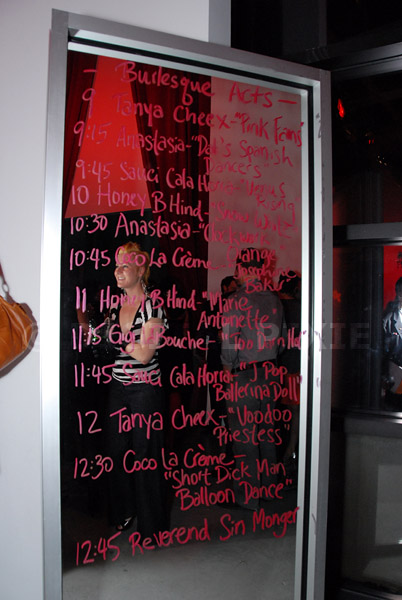 - Burlesque Acts -
9 Tanya Cheex - "Pink Fans"
9:15 Anastasia - "Spanish
Dancers"
9:45 Sauci Cala Horra - "Venus
10 Honey B Hind - "Snow White"
10:30 Anastasia -
10:45 Coco La Crème -
Josephine
Baker
11 Honey B Hind - "Marie
Antonette"
11:15 Bouchet -
11:45 Sauci Cala Horra - "J Pop
Ballerina Doll"
12 Tanya Cheek - "Voodoo
Priestess"
12:30 Coco La Crème -
"Short Dick Man
Balloon Dance"
12:45 Reverend Sin Monger